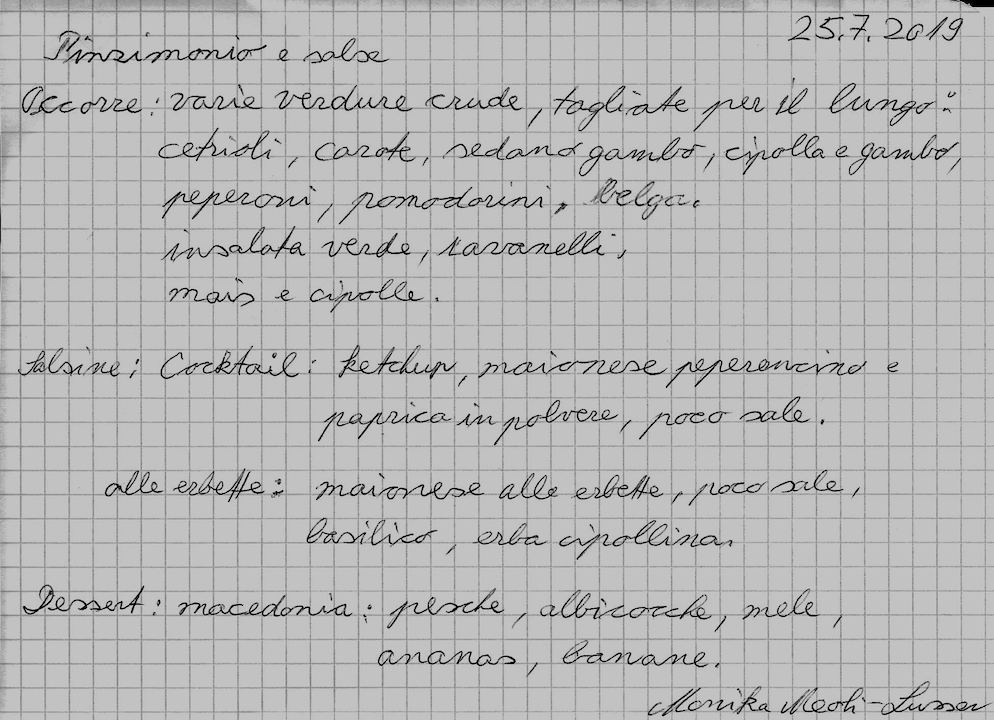 25.7.2019
Pinzimonio e salse
Occorre: varie verdure crude, tagliate per il lungo:
cetrioli, carote, sedano gambo, cipolla e gambo,
peperoni, pomodorini, belga.
insalata verde, ravanelli,
mais e cipolle.
Salsine: Cocktail: ketchup, maionese peperoncino e
paprica in polvere, poco sale.
alle erbette: maionese alle erbette, poco sale,
basilico, erba cipollina.
Dessert: macedonia: pesche, albicocche, mele,
ananas, banane.
Monika